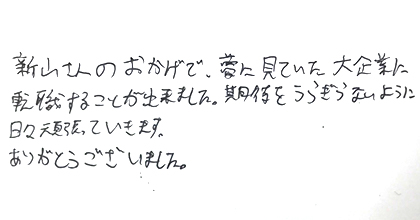 新山さんのおかげで、夢に見ていた大企業に
転職することが出来ました。期待をうらぎらないように
日々頑張っていきます。
ありがとうございました。